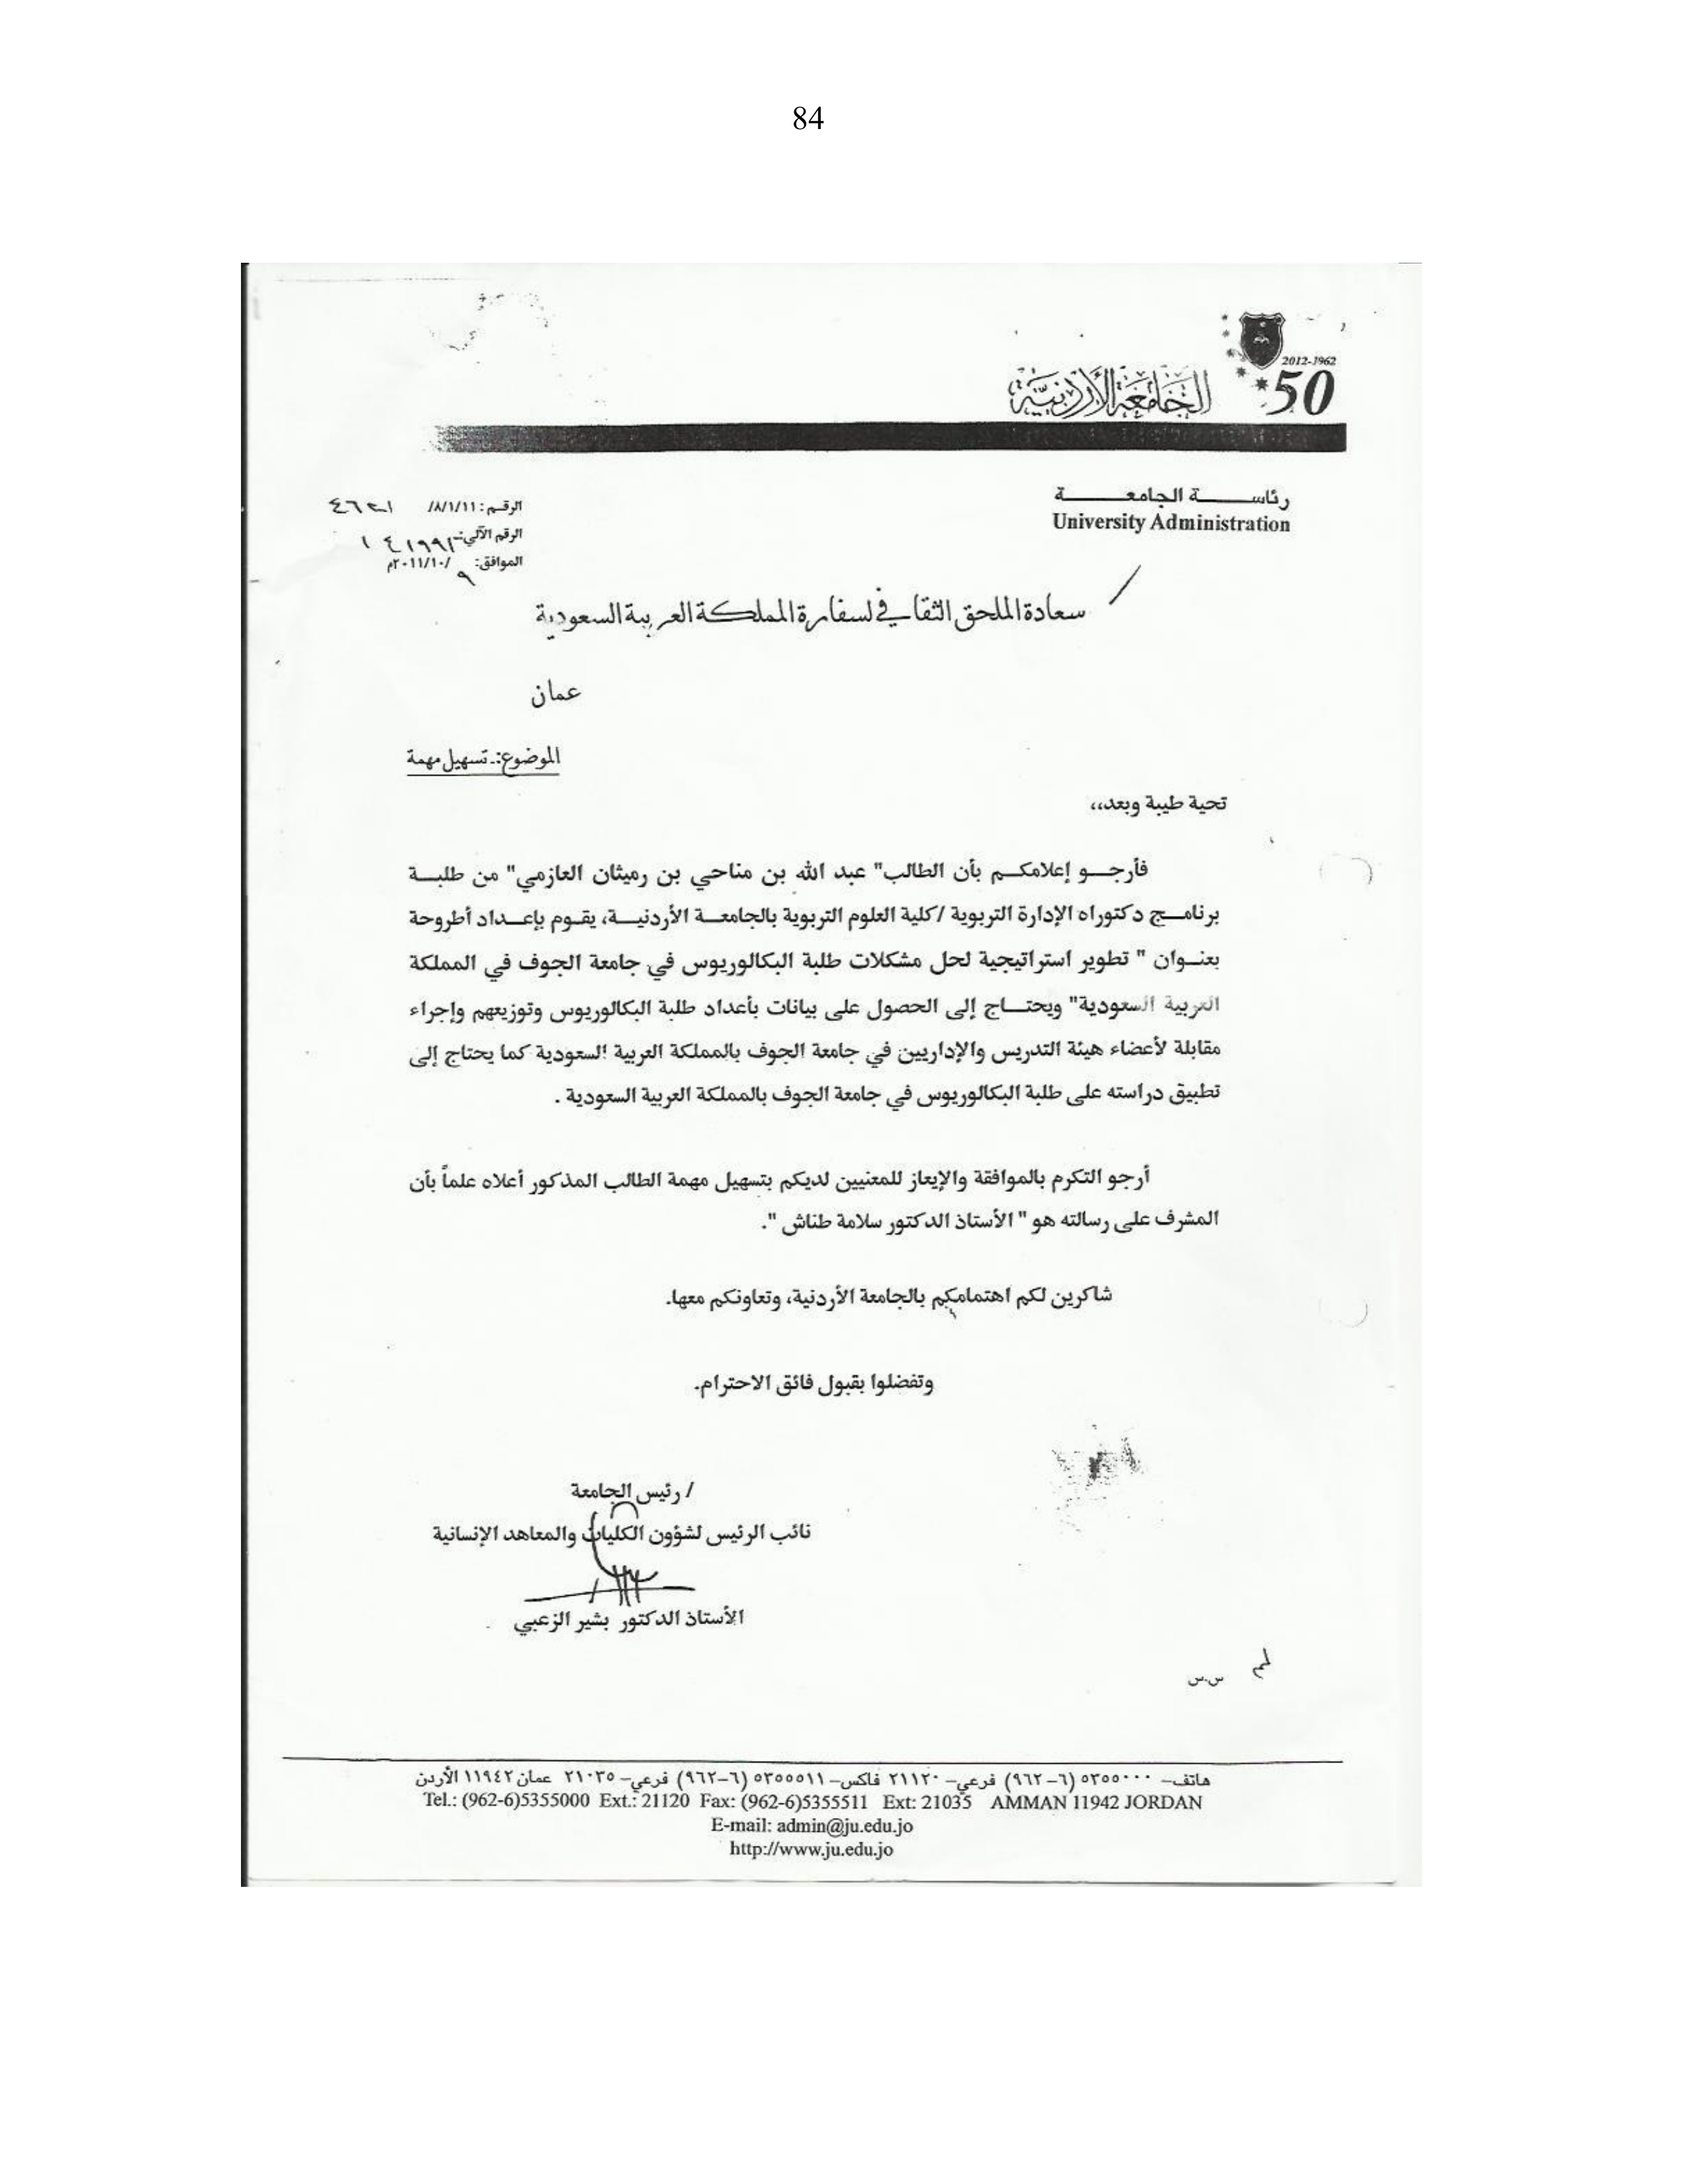 84
2012-1962
50
الجامعة الأردنية
رئاســة الجامعــة
University Administration
الرقم: ٨/١/١١/
الرقم الآلي:
الموافق: ٩/٢٠١١/١٠م
سعادة الملحق الثقافي لسفارة المملكة العربية السعودية
عمان
الموضوع:ـ تسهيل مهمة
تحية طيبة وبعد،،
فأرجــو إعلامكــم بأن الطالب" عبد الله بن مناحي بن رميثان العازمي" من طلبــة
برنامــج دكتوراه الإدارة التربوية /كلية العلوم التربوية بالجامعــة الأردنيــة، يقــوم بإعــداد أطروحة
بعنــوان " تطوير استراتيجية لحل مشكلات طلبة البكالوريوس في جامعة الجوف في المملكة
العربية السعودية" ويحتــاج إلى الحصول على بيانات بأعداد طلبة البكالوريوس وتوزيعهم وإجراء
مقابلة لأعضاء هيئة التدريس والإداريين في جامعة الجوف بالمملكة العربية السعودية كما يحتاج إلى
تطبيق دراسته على طلبة البكالوريوس في جامعة الجوف بالمملكة العربية السعودية .
أرجو التكرم بالموافقة والإيعاز للمعنيين لديكم بتسهيل مهمة الطالب المذكور أعلاه علماً بأن
المشرف على رسالته هو " الأستاذ الدكتور سلامة طناش ".
شاكرين لكم اهتمامكم بالجامعة الأردنية، وتعاونكم معها.
وتفضلوا بقبول فائق الاحترام.
/ رئيس الجامعة
نائب الرئيس لشؤون الكليات والمعاهد الإنسانية
الأستاذ الدكتور بشير الزعبي
س.س
هاتف– ٥٣٥٥٠٠٠ (٦–٩٦٢) فرعي– ٢١١٢٠ فاكس– ٥٣٥٥٥١١ (٦–٩٦٢) فرعي– ٢١٠٣٥ عمان ١١٩٤٢ الأردن
Tel.: (962-6)5355000 Ext.: 21120 Fax: (962-6)5355511 Ext: 21035 AMMAN 11942 JORDAN
E-mail: admin@ju.edu.jo
http://www.ju.edu.jo